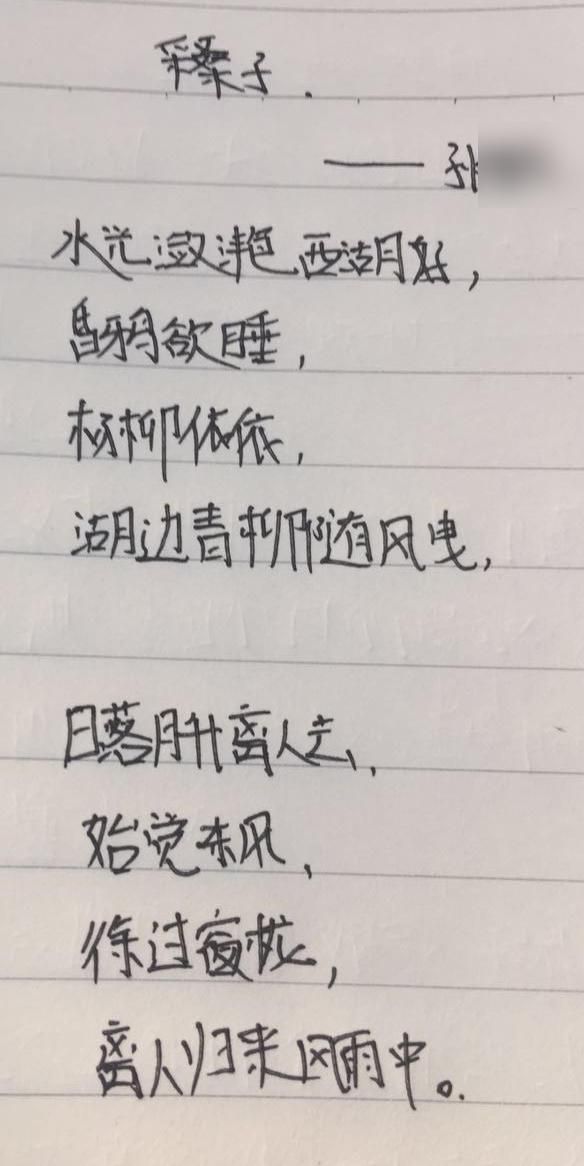 采桑子.
——孙
水光潋滟西湖好,
昏鸦欲睡,
杨柳依依,
湖边青柳随风曳,
日落月升离人去,
始觉东风,
徐过窗栊,
离人归来风雨中。